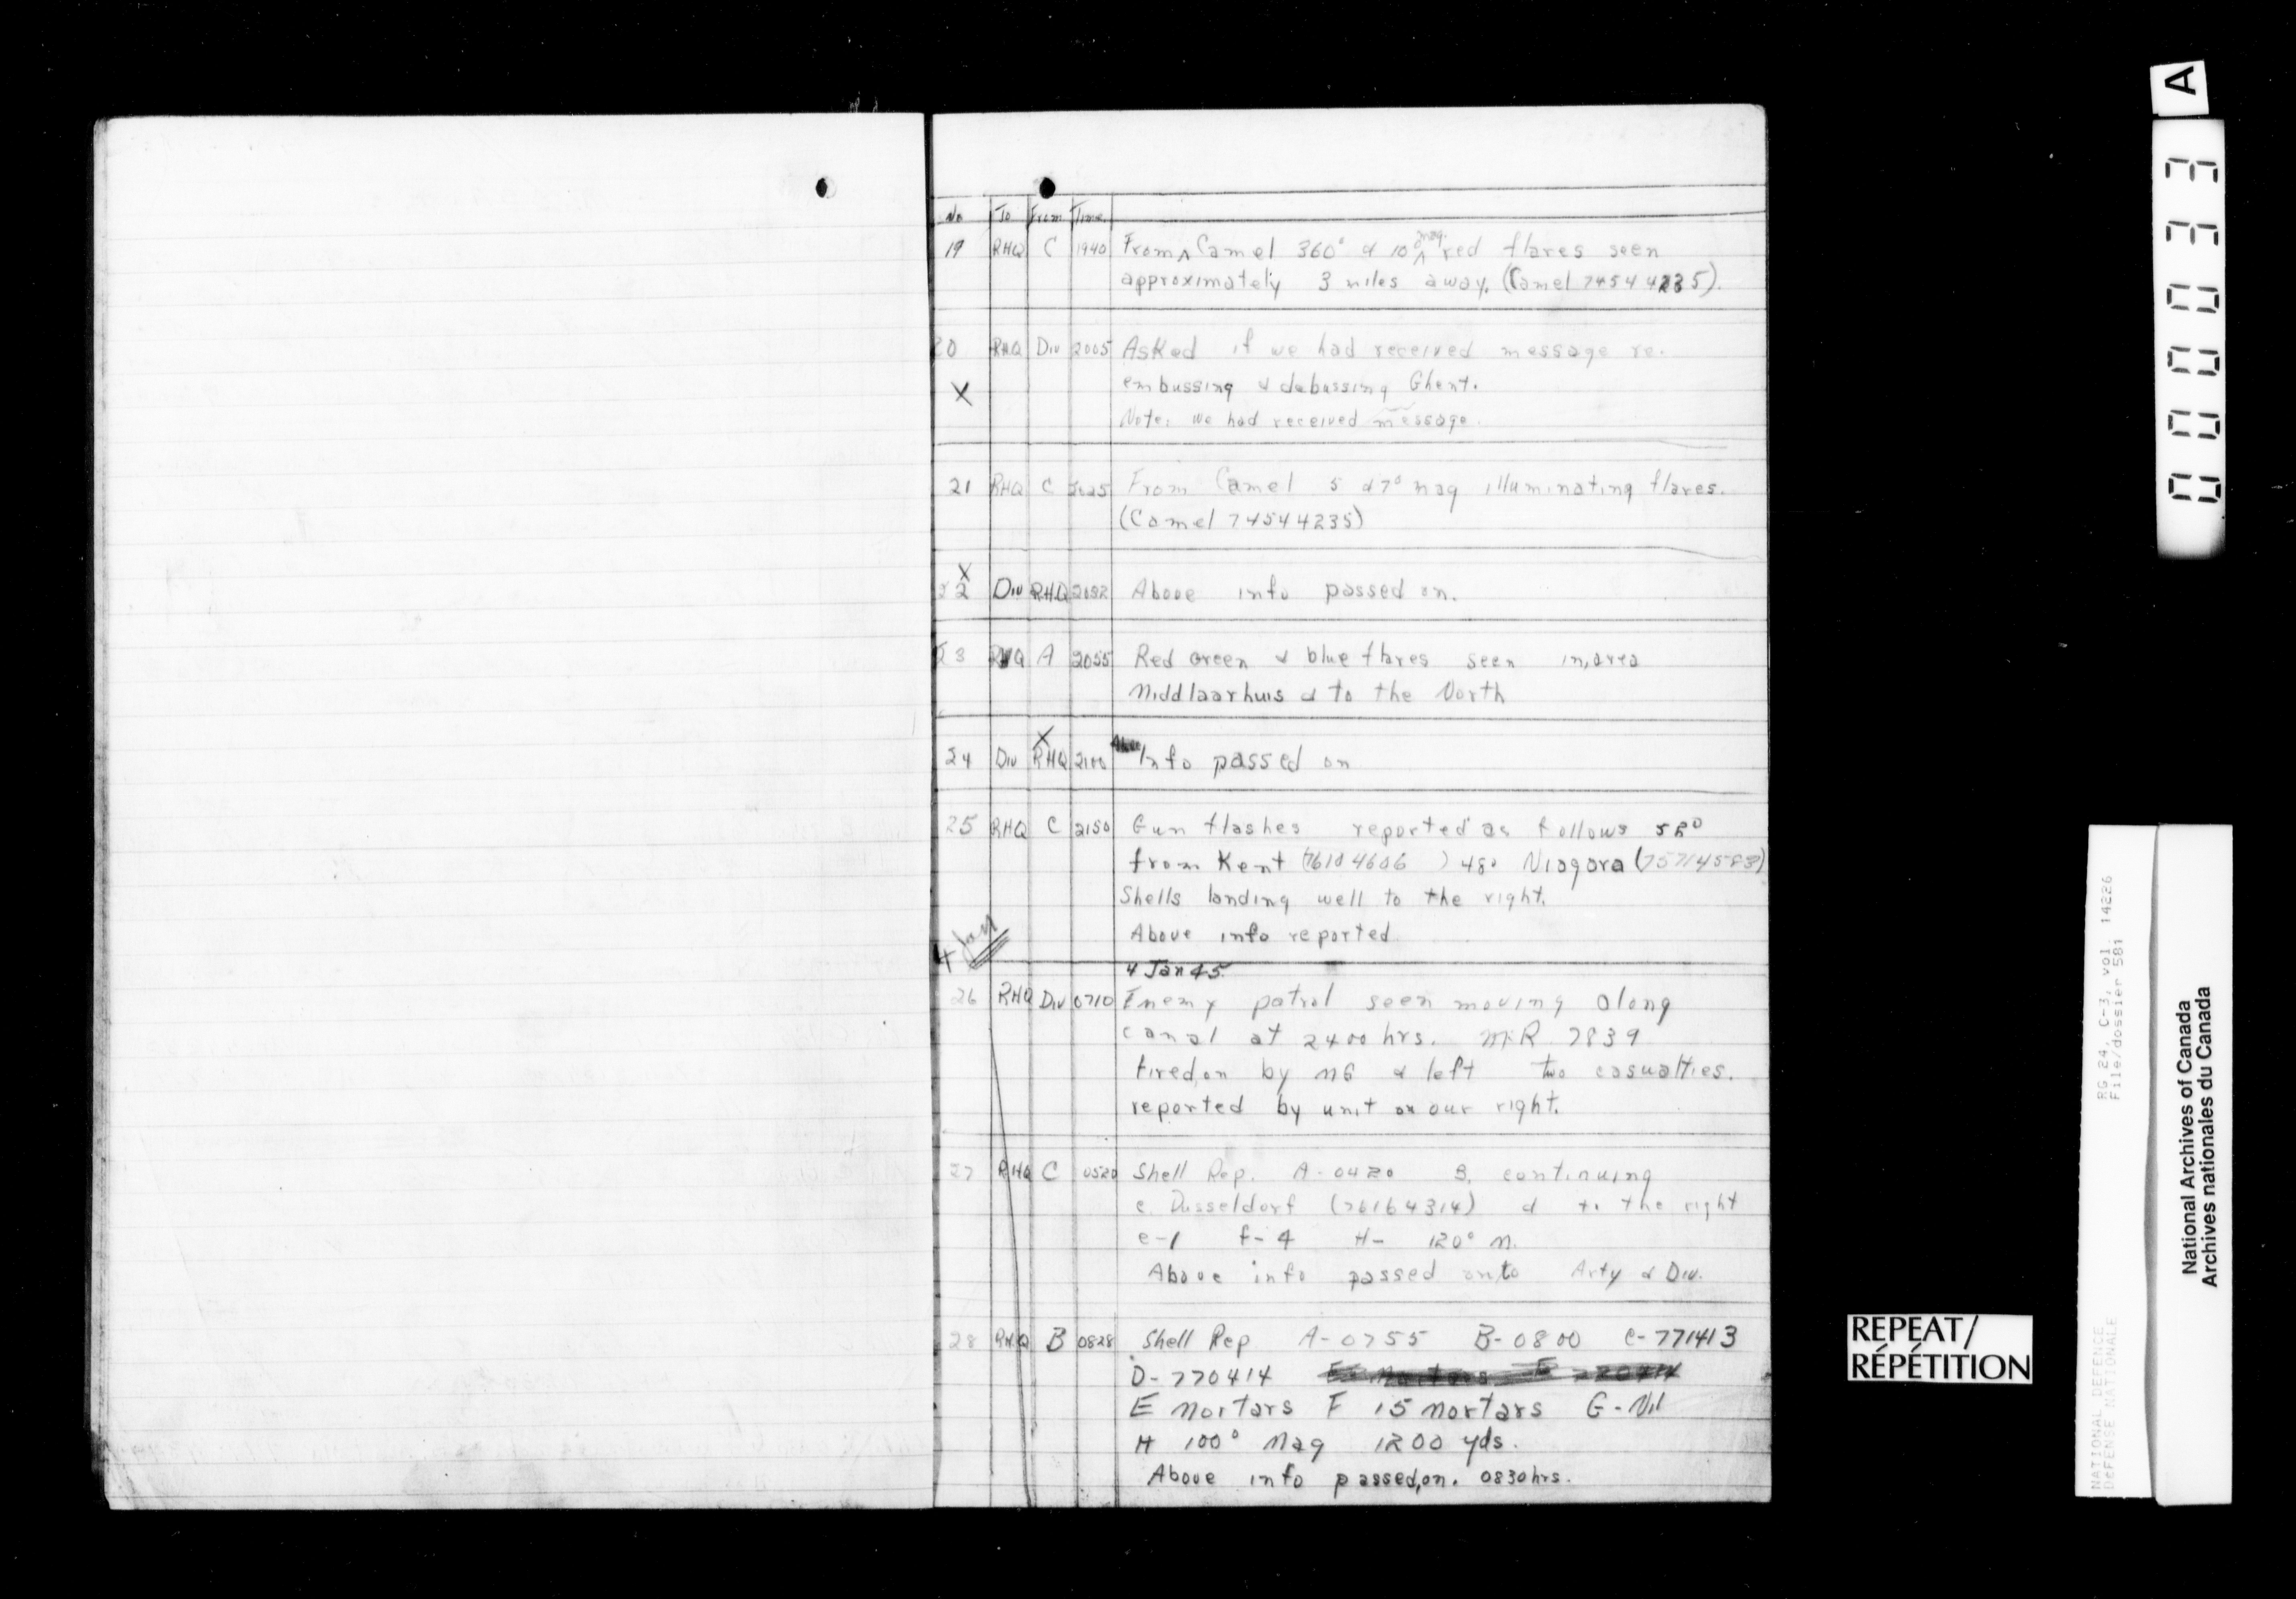 No To From Time
19 RHQ C 1940 From Camel 360° & 10° mag. red flares seen
approximately 3 miles away. (Camel 74544235).
20 RHQ Div 2005 Asked if we had received message re.
X embussing & debussing Ghent.
Note: we had received message.
21 RHQ C 2025 From Camel 5 & 7° mag illuminating flares.
(Camel 74544235)
X
22 Div RHQ 2032 Above info passed on.
23 RHQ A 2055 Red Green & blue flares seen in area
Middlaarhuis & to the North
X
24 Div RHQ 2100 Info passed on
25 RHQ C 2150 Gun flashes reported as follows 52°
from Kent (76104606) 48° Niagara (75714583)
Shells landing well to the right.
Above info reported
4 Jan
4 Jan 45
26 RHQ Div 0710 Enemy patrol seen moving along
canal at 2400 hrs. MR 7839
fired on by MG & left two casualties.
reported by unit on our right.
27 RHQ C 0520 Shell Rep. A-0420 B. continuing
c. Dusseldorf (76164314) & to the right
e-1 f-4 H- 120° M.
Above info passed onto Arty & Div.
28 RHQ B 0828 Shell Rep A-0755 B-0800 C-771413
D-770414
E Mortars F 15 mortars G-Nil
H 100° Mag 1200 yds.
Above info passed on. 0830hrs.
A
000033
RG 24, C-3, vol. 14226
File/dossier 581
NATIONAL DEFENCE
DÉFENSE NATIONALE
National Archives of Canada
Archives nationales du Canada
REPEAT/
RÉPÉTITION